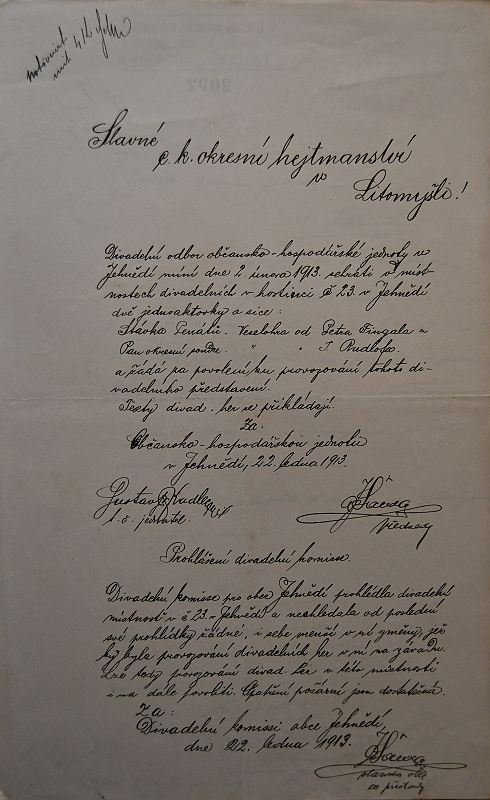 Slavné
c. k. okresní hejtmanství
v
Litomyšli!
Divadelní odbor občansko-hospodářské jednoty v
Jehnědí míní dne 2. února 1913. sehráti v míst-
nostech divadelních v hostinci č 23. v Jehnědí
dvě jednoaktovky a sice:
Stávka Penátů. Veselohra od Petra Fingala a
Pan okresní soudce. " " J. Rudlofa.
a žádá za povolení ku provozování tohoto di-
vadelního představení.
Texty divad. her se přikládají.
Za:
Občansko-hospodářskou jednotu
v Jehnědí, 22. ledna 1913.
Gustav Kadlec
t. č. jednatel.
předseda
Prohlášení divadelní komisse.
Divadelní komisse pro obec Jehnědí prohlédla divadelní
místnosti v č 23. v Jehnědí a neshledala od poslední
své prohlídky žádné, i sebe menší v ní změny, jež
by byla provozování divadelních her v ní na závadu.
Lze tedy provozování divad. her v této místnosti
i na dále povoliti. Opatření požární jsou dostatečná.
Za:
Divadelní komisi obce Jehnědí,
dne 22. ledna 1913.
starosta obce
co předseda